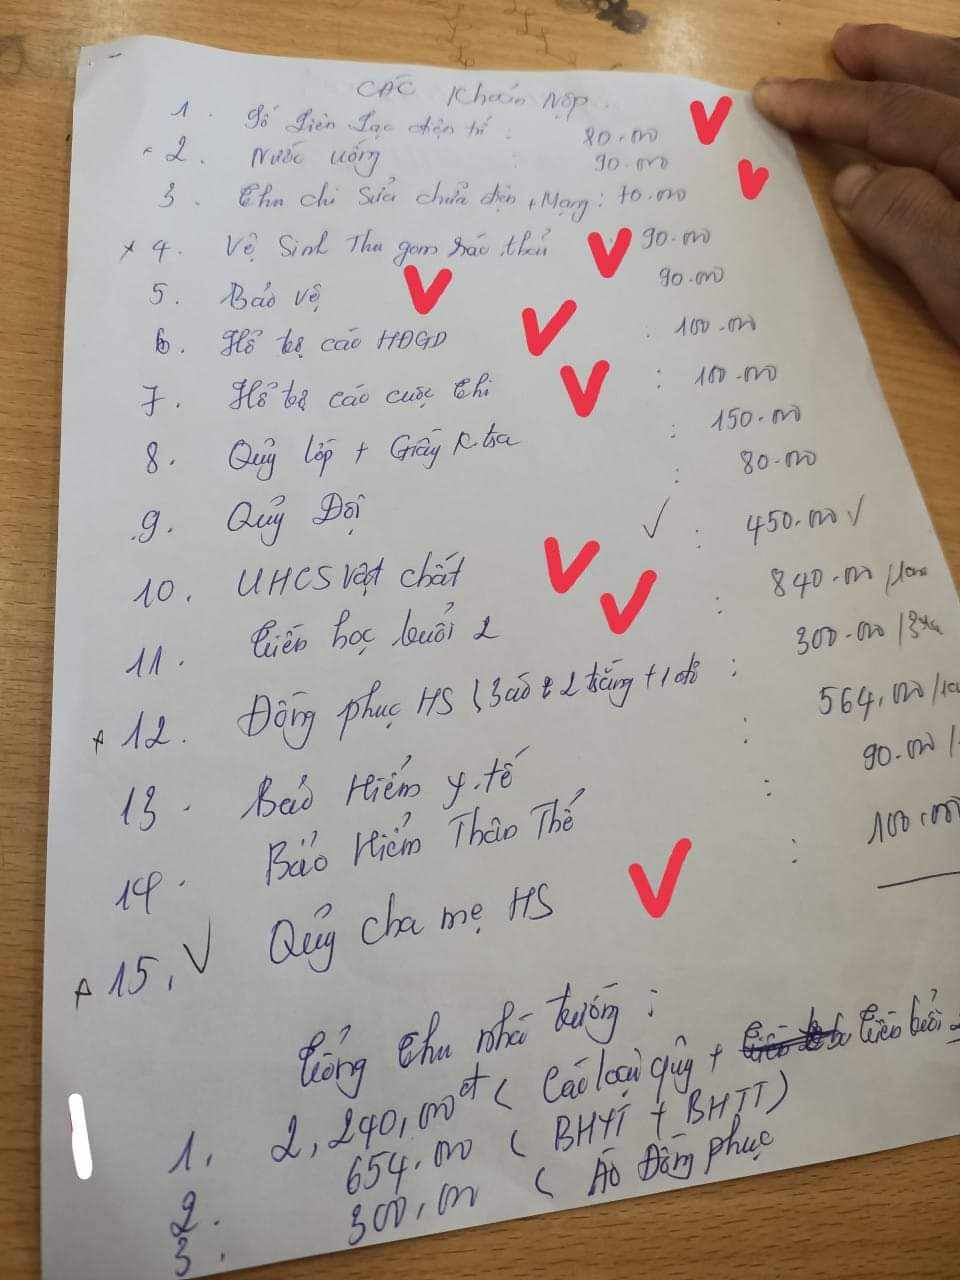 CÁC Khoản Nộp
1. Sổ Liên Lạc điện tử : 80.000
2. Nước uống : 90.000
3. Thu chi Sửa chữa điện + Mạng : 70.000
4. Vệ Sinh Thu gom rác thải 90.000
5. Bảo vệ 90.000
6. Hổ trợ các HĐGD : 100.000
7. Hổ trợ các cuộc thi : 100.000
8. Quỷ lớp + Giấy K.tra : 150.000
9. Quỷ Đội : 80.000
10. UHCS vật chất : 450.000
11. Tiền học buổi 2 : 840.000 /
12. Đồng phục HS (3 áo 2 trắng + 1 đỏ : 300.000 /3
13. Bảo Hiểm y.tế : 564,000 /
14. Bảo Hiểm Thân Thể : 90.000 /
15. Quỷ cha mẹ HS : 100.000
Tổng thu nhà trường :
1. 2,240,000đ ( Các loại quỹ + Tiền buổi 2
2. 654.000 ( BHYT + BHTT)
3. 300,000 ( Áo Đồng phục